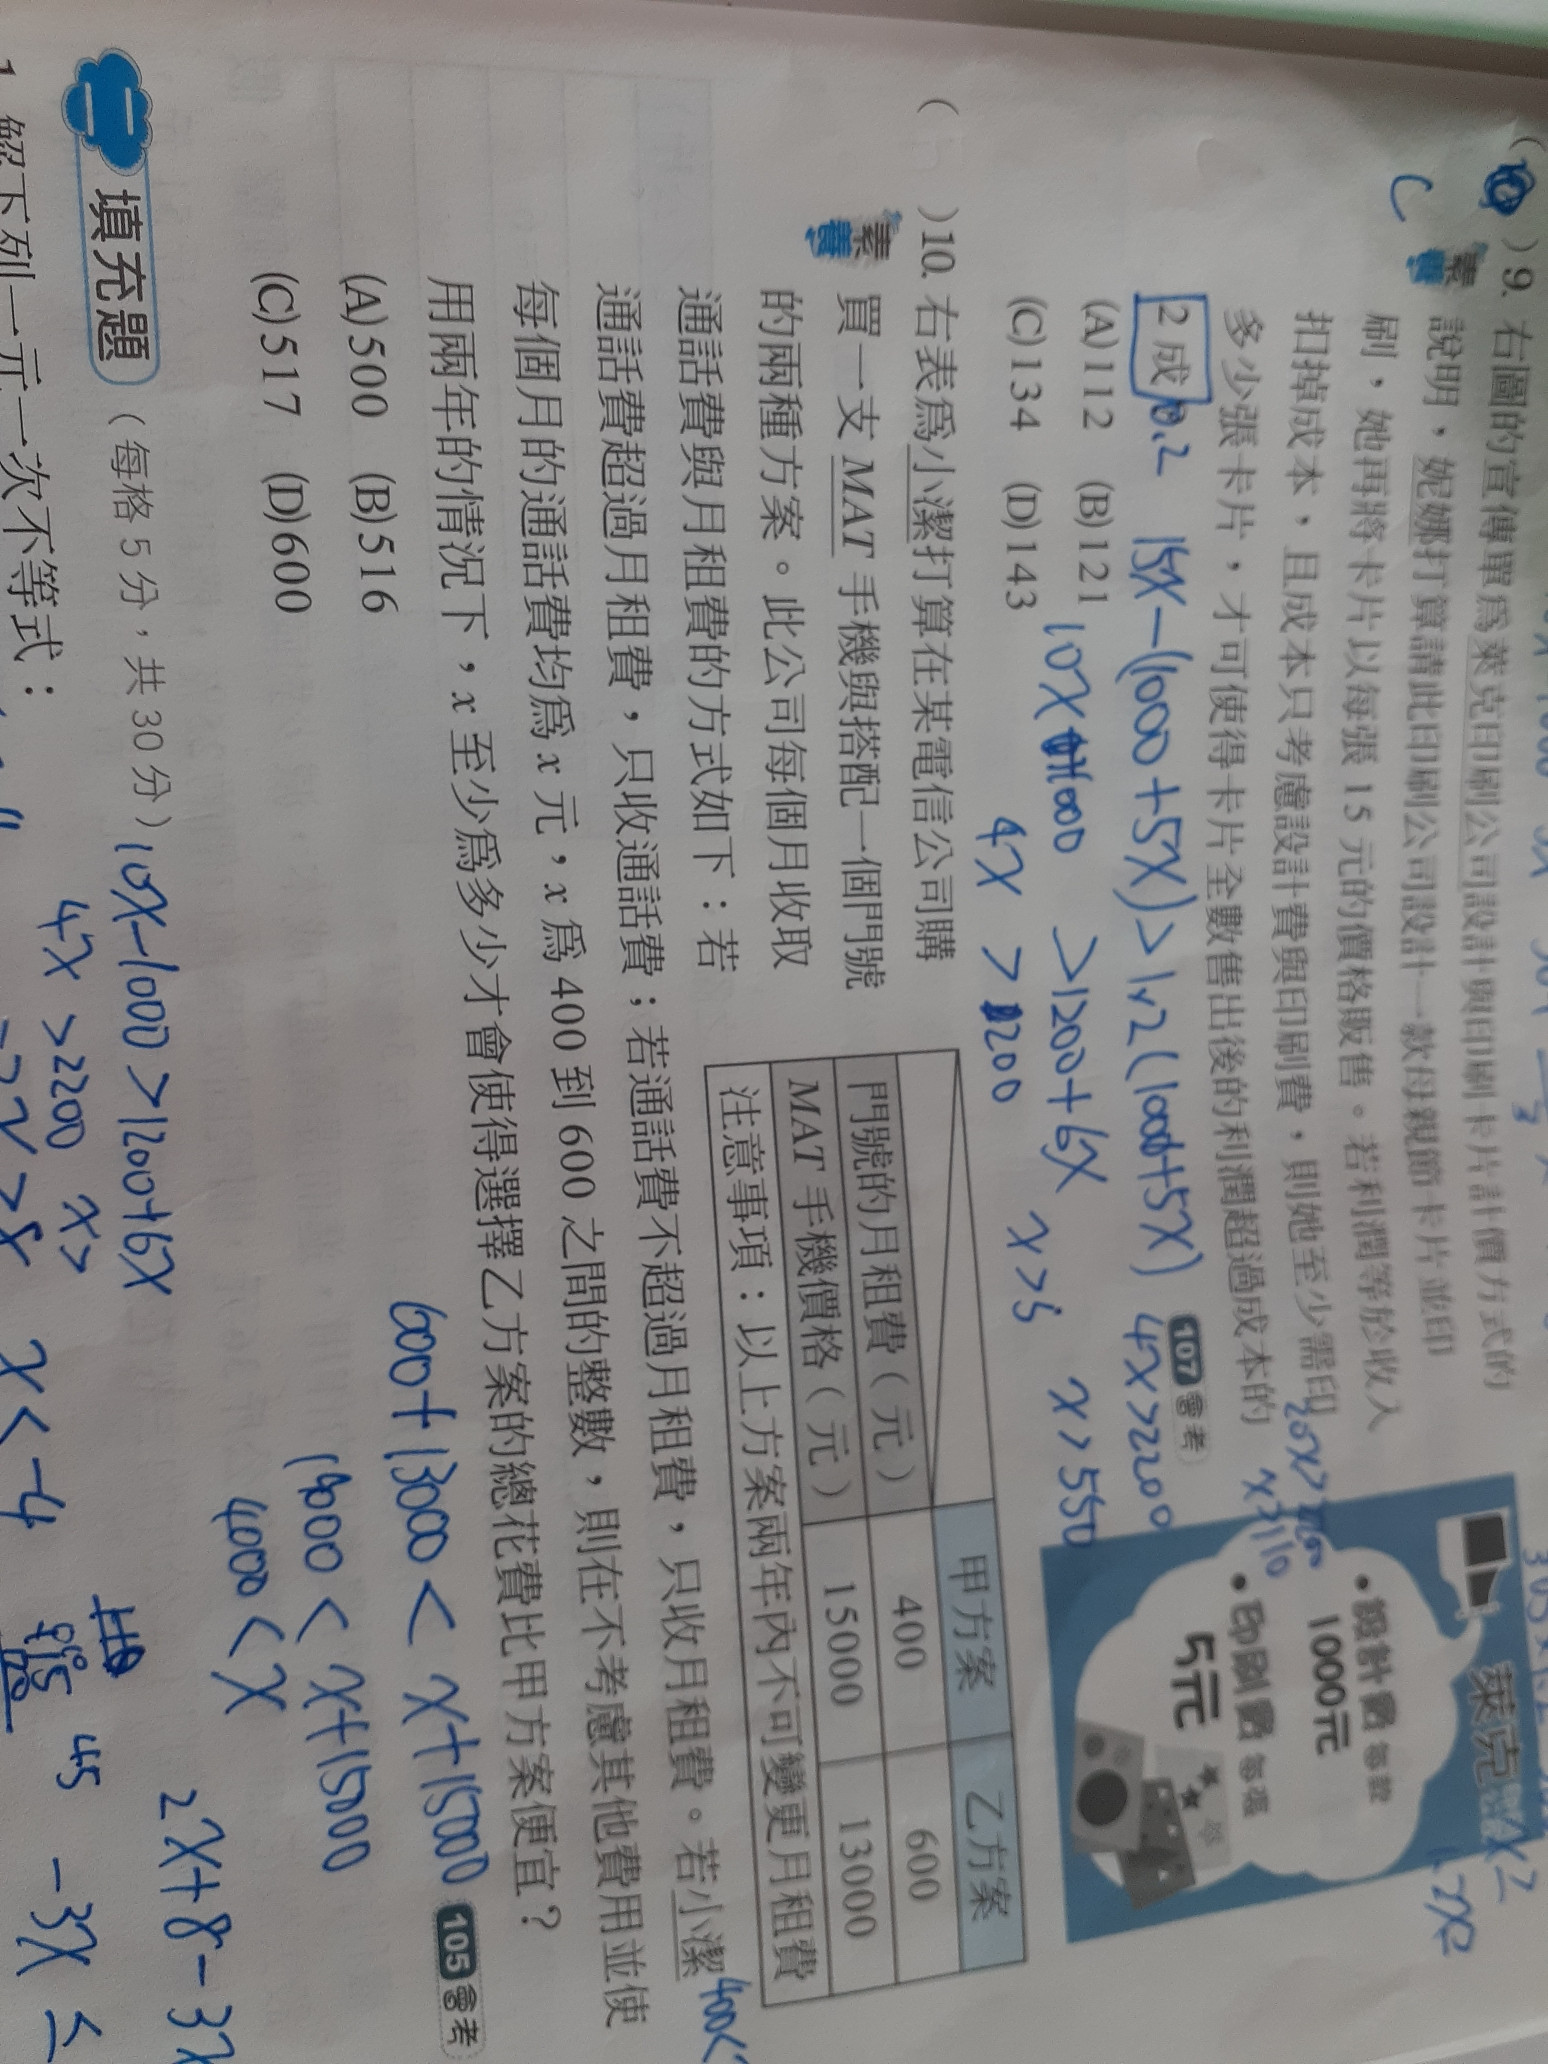 ( )9. 右圖的宣傳單為萊克印刷公司設計與印刷卡片計價方式的
C 素養 說明，妮娜打算請此印刷公司設計一款母親節卡片並印
刷，她再將卡片以每張 15 元的價格販售。若利潤等於收入
扣掉成本，且成本只考慮設計費與印刷費，則她至少需印
多少張卡片，才可使得卡片全數售出後的利潤超過成本的
2 成 0.2
107 會考
(A)112 (B)121
(C)134 (D)143
萊克
•設計費 每款
1000元
•印刷費 每張
5元
15X-(1000+5X)>1.2(1000+5X) 4X>2200
10X 1000 >1200+6X X>550
4X >1200 X>5
( )10. 右表為小潔打算在某電信公司購
素養 買一支 MAT 手機與搭配一個門號
的兩種方案。此公司每個月收取
通話費與月租費的方式如下：若
通話費超過月租費，只收通話費；若通話費不超過月租費，只收月租費。若小潔
每個月的通話費均為 x 元，x 為 400 到 600 之間的整數，則在不考慮其他費用並使
用兩年的情況下，x 至少為多少才會使得選擇乙方案的總花費比甲方案便宜？
105 會考
(A)500 (B)516
(C)517 (D)600
甲方案 乙方案
門號的月租費（元） 400 600
MAT 手機價格（元） 15000 13000
注意事項：以上方案兩年內不可變更月租費
400<
600+13000 < X+15000
19000 < X+15000
4000 < X
二 填充題（每格 5 分，共 30 分）
10X-1000 >1200+6X
4X >2200 X>
2X+8-3X
1. 解下列一元一次不等式：
X<-4
45
-3X ≤